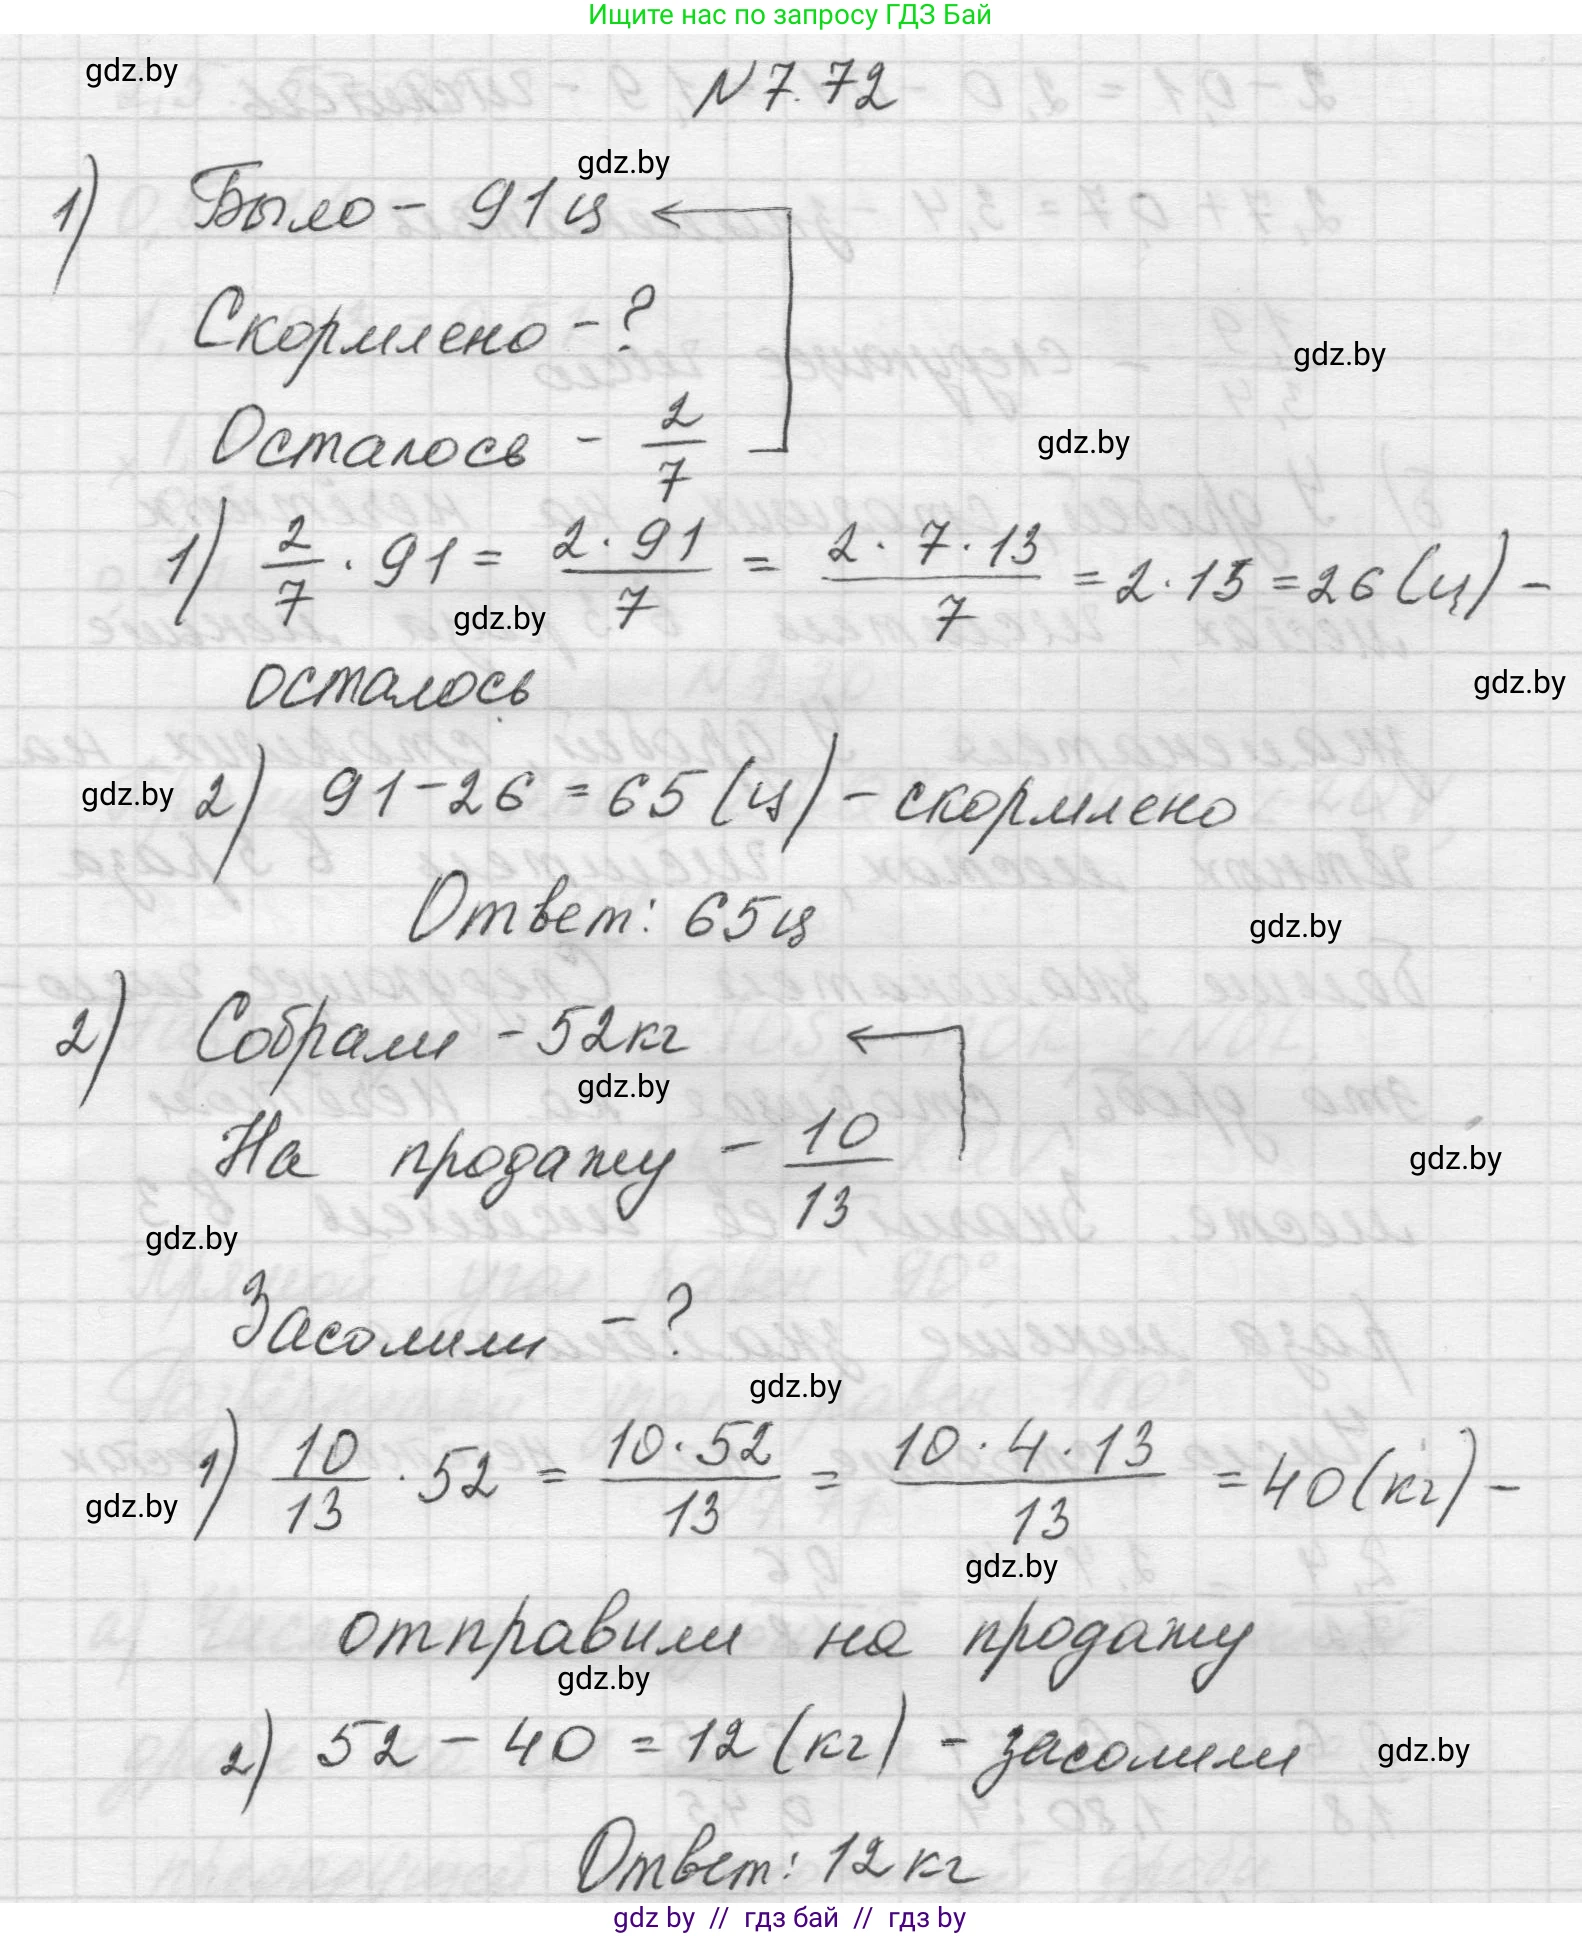 Ищите нас по запросу ГДЗ Бай
gdz.by
N 7.72
gdz.by
1) Было - 91 ц
Скормлено - ?
gdz.by
Осталось - 2/7
gdz.by
1) 2/7 · 91 = 2·91/7 = 2·7·13/7 = 2·15 = 26 (ц) -
gdz.by
осталось
gdz.by
gdz.by
2) 91 - 26 = 65 (ц) - скормлено
Ответ: 65 ц
gdz.by
2) Собрали - 52 кг
gdz.by
На продажу - 10/13
gdz.by
gdz.by
Засолили - ?
gdz.by
1) 10/13 · 52 = 10·52/13 = 10·4·13/13 = 40 (кг) -
gdz.by
gdz.by
отправили на продажу
gdz.by
2) 52 - 40 = 12 (кг) - засолили
gdz.by
Ответ: 12 кг
gdz by // гдз бай // гдз by